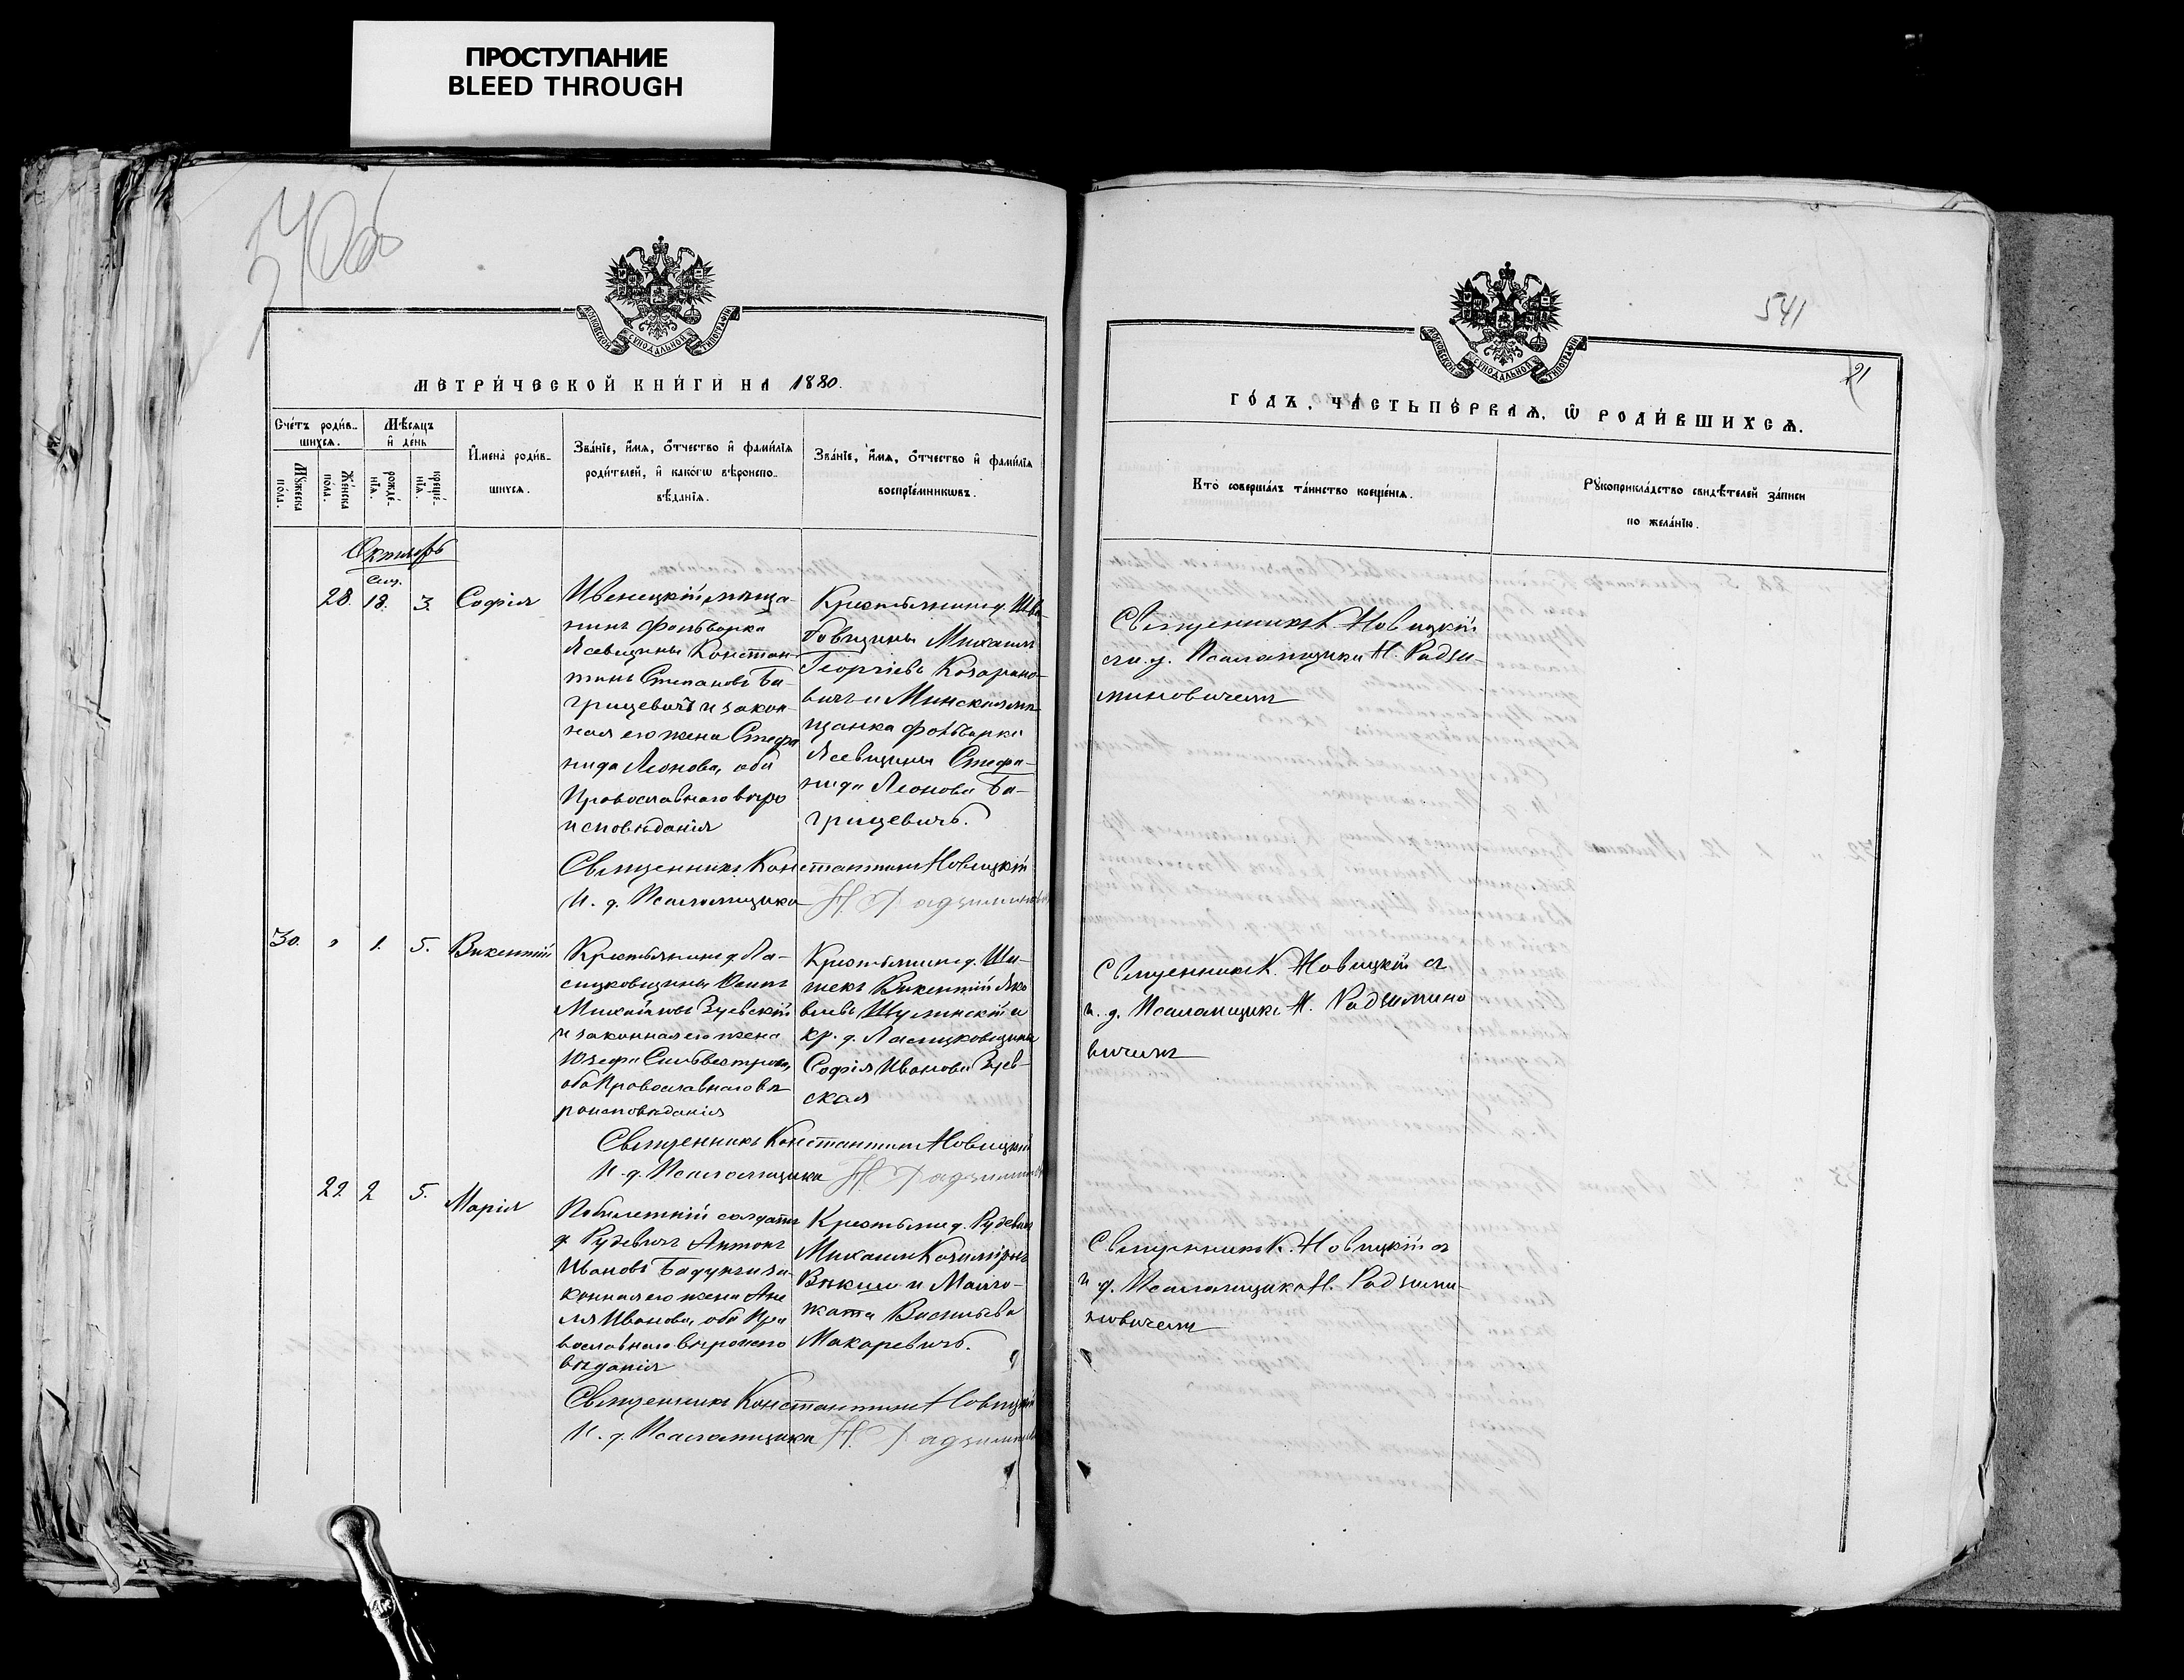 ПРОСТУПАНИЕ
BLEED THROUGH
540об
МОСКОВСКОЙ СУНОДАЛЬНОЙ ТИПОГРАФІИ
МЕТРИ́ЧЕСКОЙ КНИ́ГИ НА 1880.
Сче́тъ роди́в-
шихсѧ.
Мѣ́сѧцъ
и҆ де́нь
Мꙋ́жеска
по́ла.
Же́нска
по́ла.
рожде́-
нїѧ.
креще́-
нїѧ.
И҆мена̀ роди́в-
шихсѧ.
Зва́нїе, и҆́мѧ, ѻ҆́тчество и҆ фами́лїѧ
роди́телей, и҆ како́гѡ вѣроиспо-
вѣ́данїѧ.
Зва́нїе, и҆́мѧ, ѻ҆́тчество и҆ фами́лїѧ
воспрїе́мникѡвъ.
Октябрь
Сен.
28. 18. 3. Софія
Ивенецкій мѣща-
нинъ фольварка
Ясевщины Констан-
тинъ Степановъ Ба-
грицевичъ и закон-
ная его жена Стефа
нида Леонова, оба
Православнаго вѣро
исповѣданія
Крестьянинъ д.
бовщины Михаилъ
Георгіевъ Козарино-
вичъ и Минская мѣ
щанка фольварка
Ясевщины Стефа-
нида Леонова Ба-
грицевичъ.
Священникъ Константинъ Новицкій
И. д. Псаломщика Н. Радзиминов
30. " 1. 5. Викентій
Крестьянинъ д. Ла-
сицковщины Осипъ
Михайловъ Зуевскій
и законная его жена
Юзефа Сильвестрова,
оба Православнаго вѣ
роисповѣданія
Крестьянинъ д. Ши-
шекъ Викентій Яко
влевъ Шулинскій и
кр. д. Ласицковщины
Софія Иванова Зуев-
ская
Священникъ Константинъ Новицкій
И. д. Псаломщика Н. Радзимин
29 2 5. Марія
солдатъ
д. Рудевичъ Антонъ
Ивановъ и за-
конная его жена Ане
ля Иванова, оба Пра
вославнаго вѣроиспо
вѣданія
Крестьянинъ д. Рудевичъ
Михаилъ Казиміровъ
и Малго-
жата Васильева
Макаревичъ.
Священникъ Константинъ Новицкій
И. д. Псаломщика Н. Радзимин
541
21
МОСКОВСКОЙ СУНОДАЛЬНОЙ ТИПОГРАФІИ
ГО́ДЪ, ЧА́СТЬ ПЕ́РВАѦ, Ѡ҆ РОДИ́ВШИХСѦ.
Кто̀ соверша́лъ та́инство креще́нїѧ.
Рꙋкоприкла́дство свидѣ́телей за́писи
по жела́нїю.
Священникъ К. Новицкій
съ и. д. Псаломщика Н. Радзи-
миновичемъ
Священникъ К. Новицкій съ
и. д. Псаломщика Н. Радзимино
вичемъ
Священникъ К. Новицкій съ
и. д. Псаломщика Н. Радзими-
новичемъ